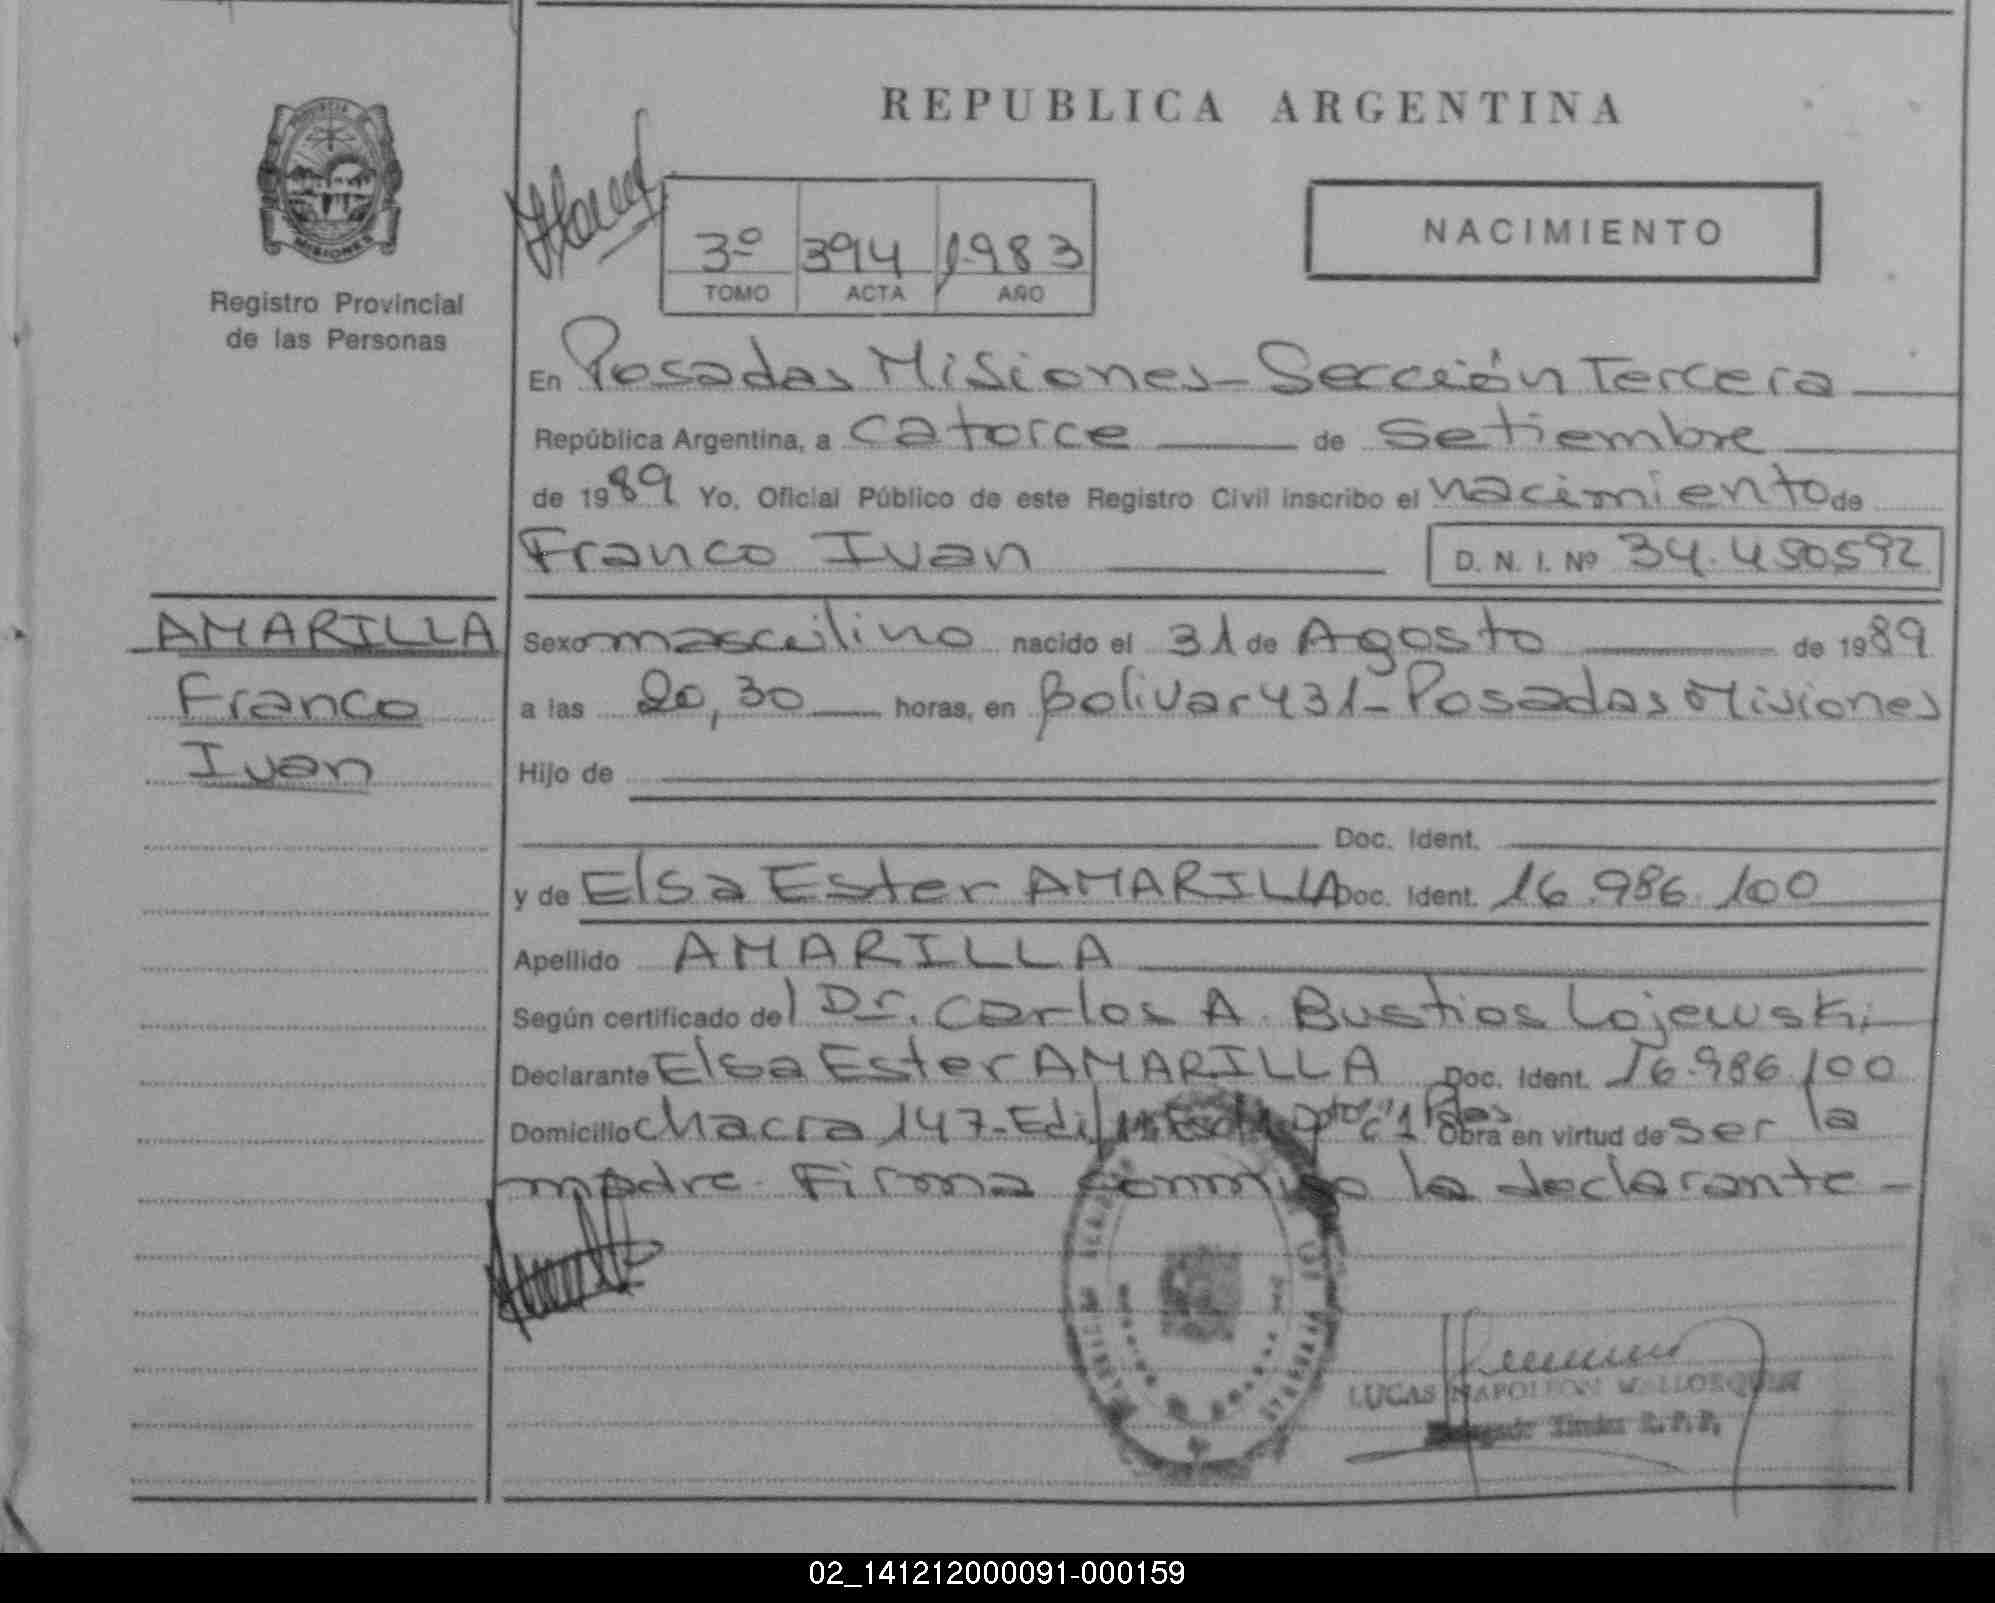 REPUBLICA ARGENTINA
PROVINCIA DE
MISIONES
Registro Provincial
de las Personas
3º 394 1983
TOMO ACTA AÑO
NACIMIENTO
En Posadas Misiones - Sección Tercera
República Argentina, a catorce de setiembre
de 1989 Yo, Oficial Público de este Registro Civil inscribo el nacimiento de
Franco Ivan D. N. I. Nº 34.450592
AMARILLA
Franco
Ivan
Sexo masculino nacido el 31 de Agosto de 1989
a las 20,30 horas, en Bolivar 431 - Posadas Misiones
Hijo de
Doc. Ident.
y de Elsa Ester AMARILLA Doc. Ident. 16.986.100
Apellido AMARILLA
Según certificado del Dr. Carlos A. Bustios Lojewski
Declarante Elsa Ester AMARILLA Doc. Ident. 16.986.100
Domicilio Chacra 147 - Edif 1 Pdas Obra en virtud de ser la
madre. Firma conmigo la declarante -
LUCAS NAPOLEON MALLORQUIN
R.P.P.
02_141212000091-000159